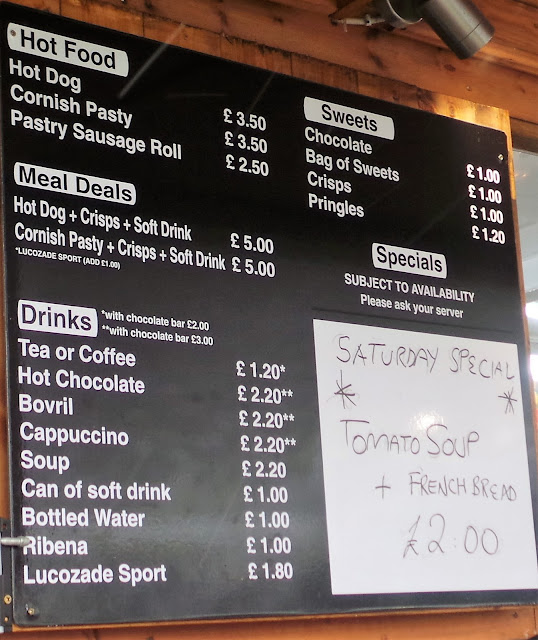 Hot Food
Hot Dog £ 3.50
Cornish Pasty £ 3.50
Pastry Sausage Roll £ 2.50
Meal Deals
Hot Dog + Crisps + Soft Drink £ 5.00
Cornish Pasty + Crisps + Soft Drink £ 5.00
*LUCOZADE SPORT (ADD £1.00)
Drinks
*with chocolate bar £2.00
**with chocolate bar £3.00
Tea or Coffee £ 1.20*
Hot Chocolate £ 2.20**
Bovril £ 2.20**
Cappuccino £ 2.20**
Soup £ 2.20
Can of soft drink £ 1.00
Bottled Water £ 1.00
Ribena £ 1.00
Lucozade Sport £ 1.80
Sweets
Chocolate £ 1.00
Bag of Sweets £ 1.00
Crisps £ 1.00
Pringles £ 1.20
Specials
SUBJECT TO AVAILABILITY
Please ask your server
SATURDAY SPECIAL
* *
TOMATO SOUP
+ FRENCH BREAD
£2:00